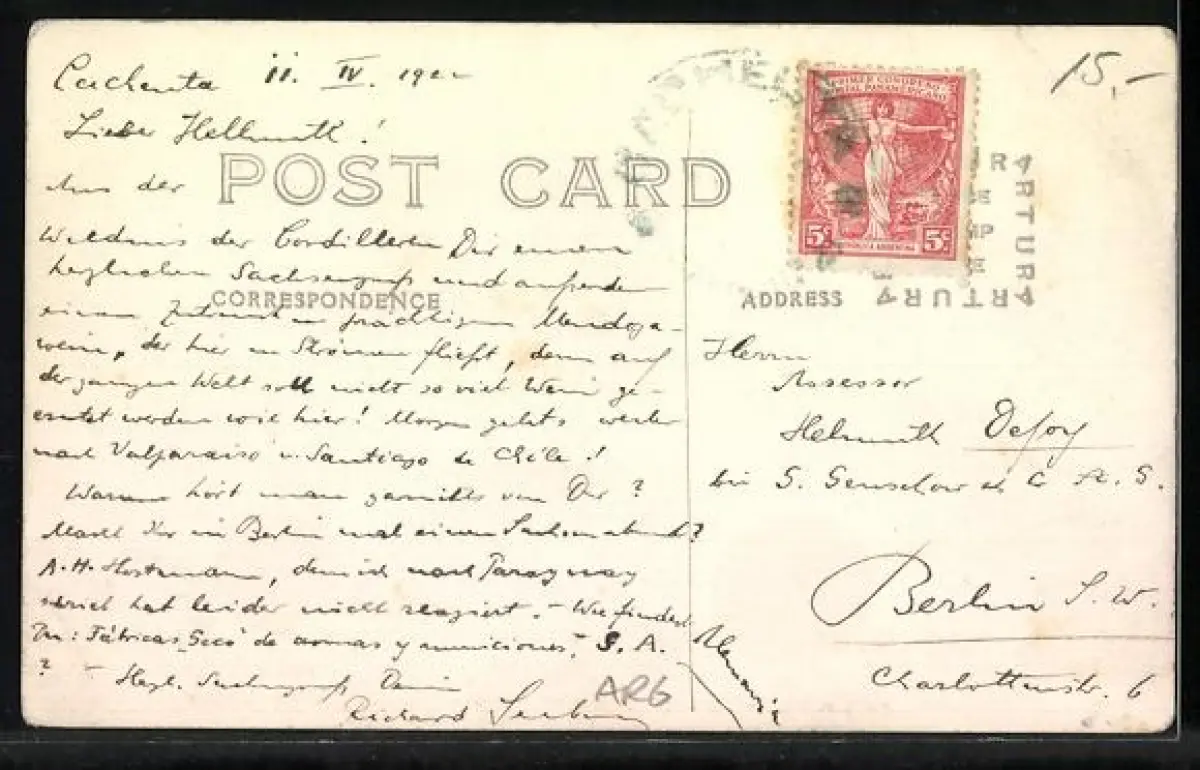 Cachenta 11. IV. 192
Lieber Hellmuth!
POST CARD
Aus der
Wildnis der Cordilleren Dir einen
herzlichen Sachsengruß und außerdem
CORRESPONDENCE
einen prächtigen Mendoza-
wein, der hier in Strömen fließt, denn auf
der ganzen Welt soll nicht so viel Wein ge-
erntet werden wie hier! Morgen gehts weiter
nach Valparaiso u. Santiago de Chile!
Warum hört man garnichts von Dir?
Macht Ihr in Berlin mal einen Sachsenabend?
A. H. Horstmann, dem ich nach Paraguay
schrieb hat leider nicht reagiert. - Wie findest
Du: Fábricas Secó de armas y municiones, S. A.
? - Herzl. Sachsengruß Dein
Richard
15,-
PRIMER CONGRESO
POSTAL PANAMERICANO
5c 5c
REPUBLICA ARGENTINA
ARTURA
ARTURA
ADDRESS
Herrn
Assessor
Helmuth Defoy
bei G. Genschow & C A. G.
Berlin S. W.
Charlottenstr. 6
Alemania
ARG